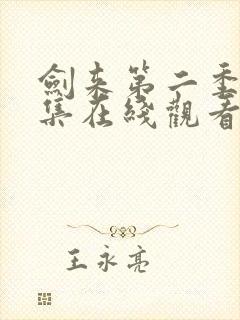 劍来第二季
集在綫觀看
王永亮